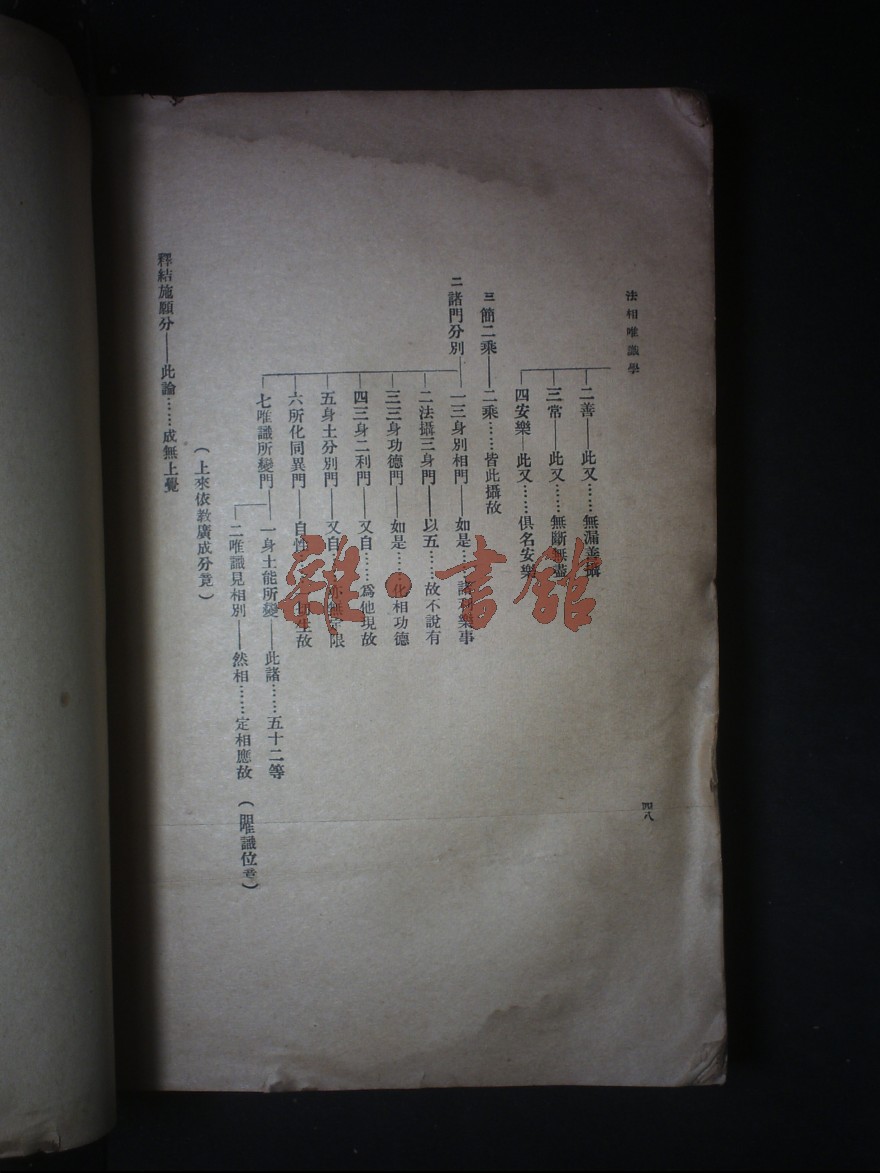 法相唯識學
二善——此又……無漏善攝
三常——此又……無斷無盡
四安樂——此又……俱名安樂
三簡二乘——二乘……皆此攝故
二諸門分別
一三身別相門——如是……諸利樂事
二法攝三身門——以五……故不說有
三三身功德門——如是……化相功德
四三身二利門——又自……為他現故
五身土分別門——又自……亦無定限
六所化同異門——自性……生故
七唯識所變門
一身土能所變——此諸……五十二等
二唯識見相別——然相……定相應故
(明唯識位竟)
(上來依教廣成分竟)
釋結施願分——此論……成無上覺
四八
雜·書館